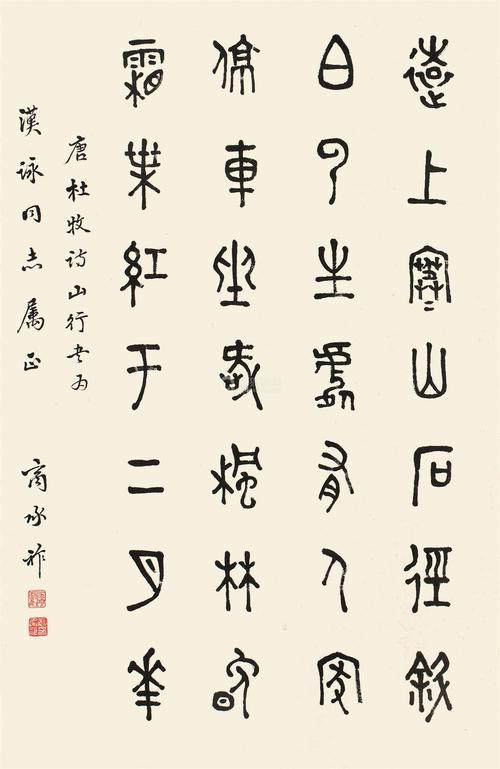 遠上寒山石徑斜
白云生處有人家
停車坐愛楓林晚
霜葉紅于二月華
唐杜牧詩山行書為
漢詠同志屬正 商承祚